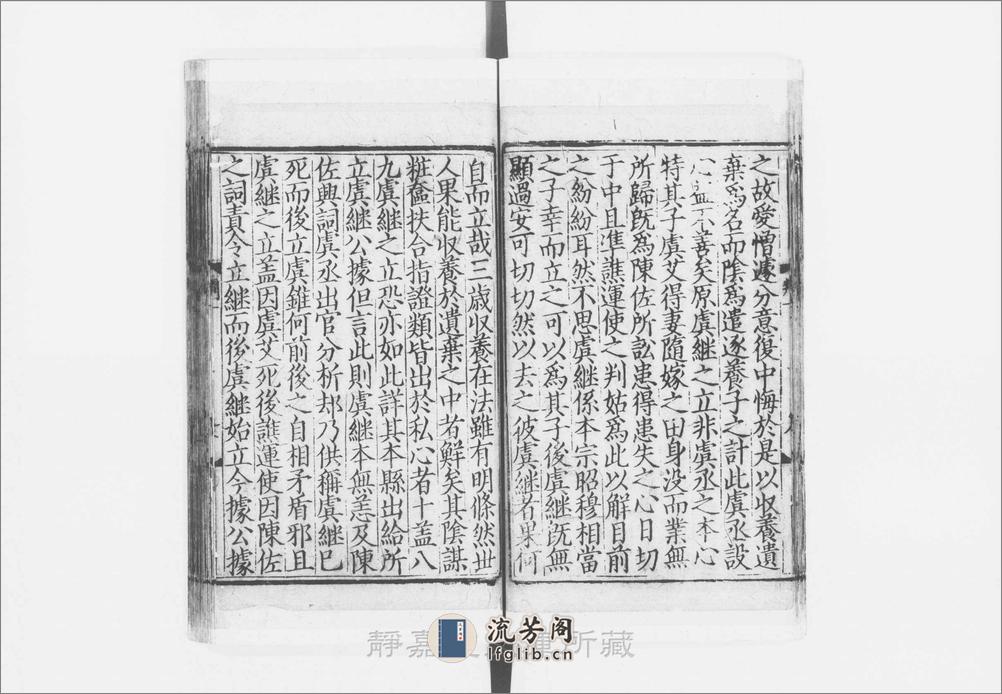 之故愛憎遂分意復中悔於是以収養遺
棄爲名而陰爲遣逐養子之計此虞丞設
心亦不善矣原虞継之立非虞丞之本心
特其子虞艾得妻隨嫁之田身没而業無
所歸旣爲陳佐所訟患得患失之心日切
于中且準譙運使之判姑爲此以解目前
之紛紛耳然不思虞継係本宗昭穆相當
之子幸而立之可以爲其子後虞継旣無
顯過安可切切然以去之彼虞継者果何
自而立哉三歳収養在法雖有明條然丗
人果能収養於遺棄之中者鮮矣其隂謀
粧奩扶合指證類皆出於私心者十盖八
九虞継之立恐亦如此詳其本縣出給所
立虞継公據但言此則虞継本無恙及陳
佐興詞虞丞出官分析却乃供稱虞継已
死而後立虞錐何前後之自相矛盾邪且
虞継之立盖因虞艾死後譙運使因陳佐
之詞責令立継而後虞継始立今據公據
流芳阁
lfglib.cn
靜嘉 所藏